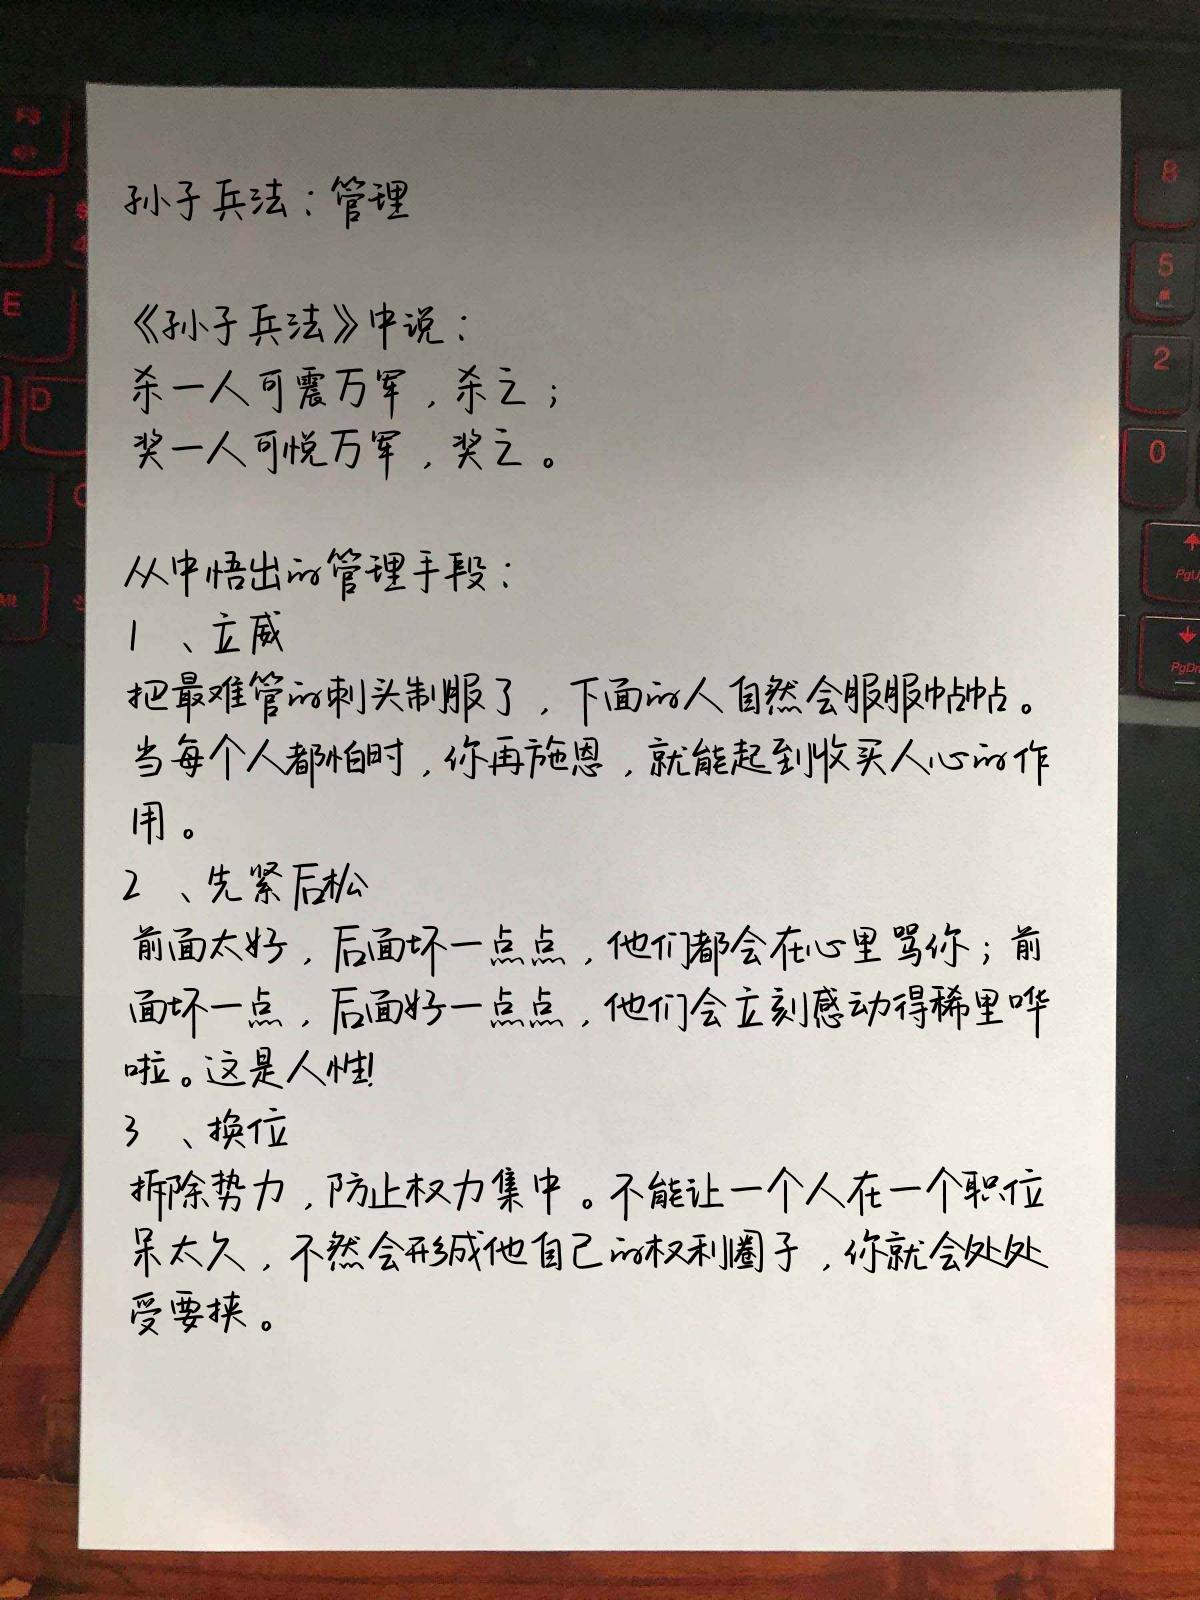 孙子兵法：管理
《孙子兵法》中说：
杀一人可震万军，杀之；
奖一人可悦万军，奖之。
从中悟出的管理手段：
1、立威
把最难管的刺头制服了，下面的人自然会服服帖帖。
当每个人都怕时，你再施恩，就能起到收买人心的作
用。
2、先紧后松
前面太好，后面坏一点点，他们都会在心里骂你；前
面坏一点，后面好一点点，他们会立刻感动得稀里哗
啦。这是人性!
3、换位
拆除势力，防止权力集中。不能让一个人在一个职位
呆太久，不然会形成他自己的权利圈子，你就会处处
受要挟。
E
D
8
5
2
0
PgU
PgDn